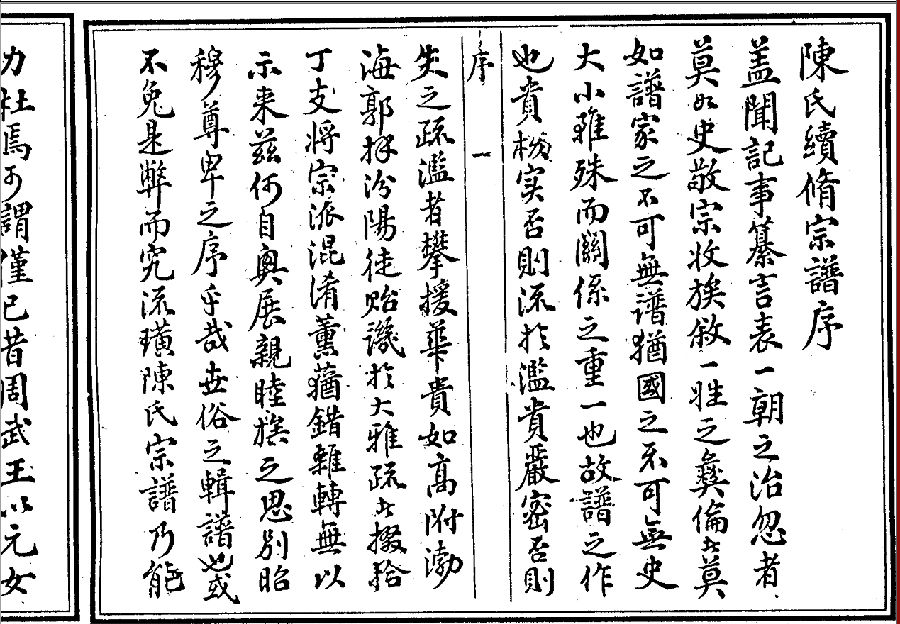 陳氏續脩宗譜序
盖聞記事纂言表一朝之治忽者
莫如史敬宗收族敘一姓之彝倫者莫
如譜家之不可無譜猶國之不可無史
大小雖殊而關係之重一也故譜之作
也貴核实否則流於濫貴嚴密否則
序 一
失之疏濫者攀援華貴如高附渤
海郭拜汾陽徒貽譏於大雅疏者掇拾
丁支将宗派混淆薰蕕錯雜轉無以
示来茲何自興展親睦族之思別昭
穆尊卑之序乎哉世俗之輯譜也或
不免是弊而究流璜陳氏宗譜乃能
力杜焉可謂僅已昔周武王以元女